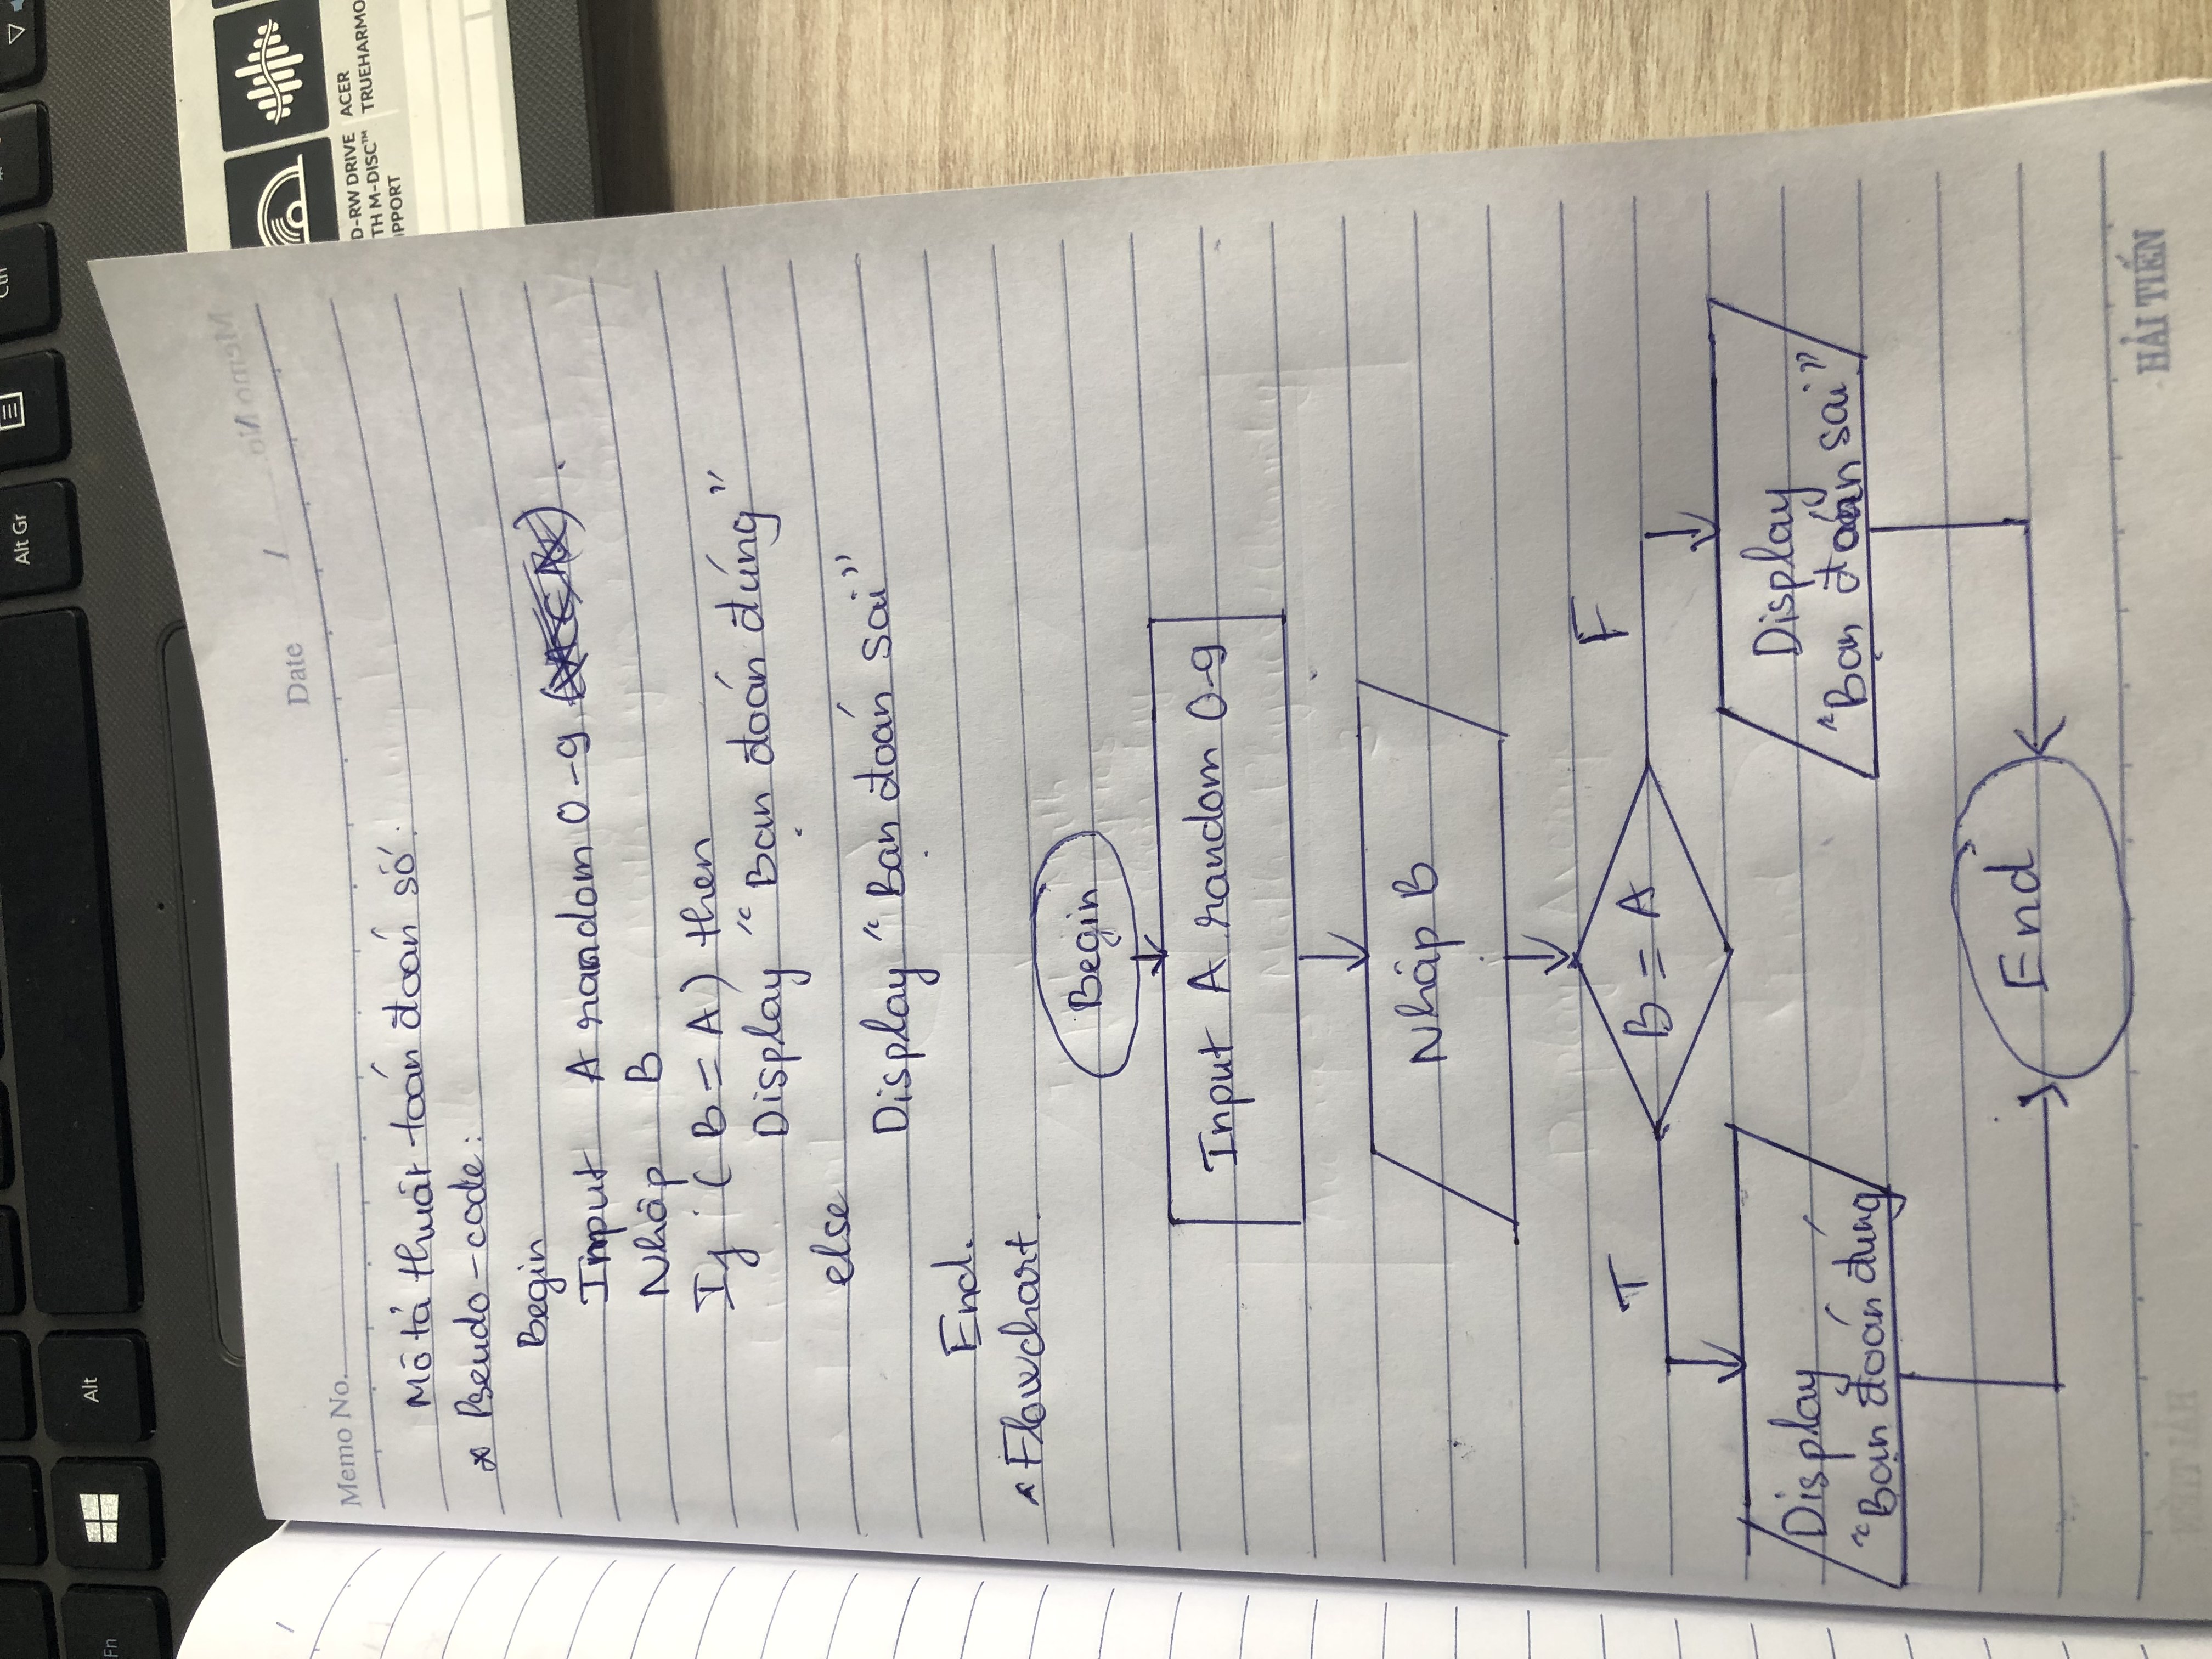 Alt Gr
Fn
Alt
Memo No.
Date /
D-RW DRIVE
TH M-DISC™
PPORT
ACER
TRUEHARMO
Mô tả thuật toán đoán số:
* Pseudo-code:
Begin
Input A random 0-9
Nhập B
If (B = A) then
Display "Bạn đoán đúng"
else
Display "Bạn đoán sai"
End.
* Flowchart.
Begin
Input A random 0-9
Nhập B
B = A
T
F
Display
"Bạn đoán đúng
Display
"Bạn đoán sai"
End
HẢI TIẾN